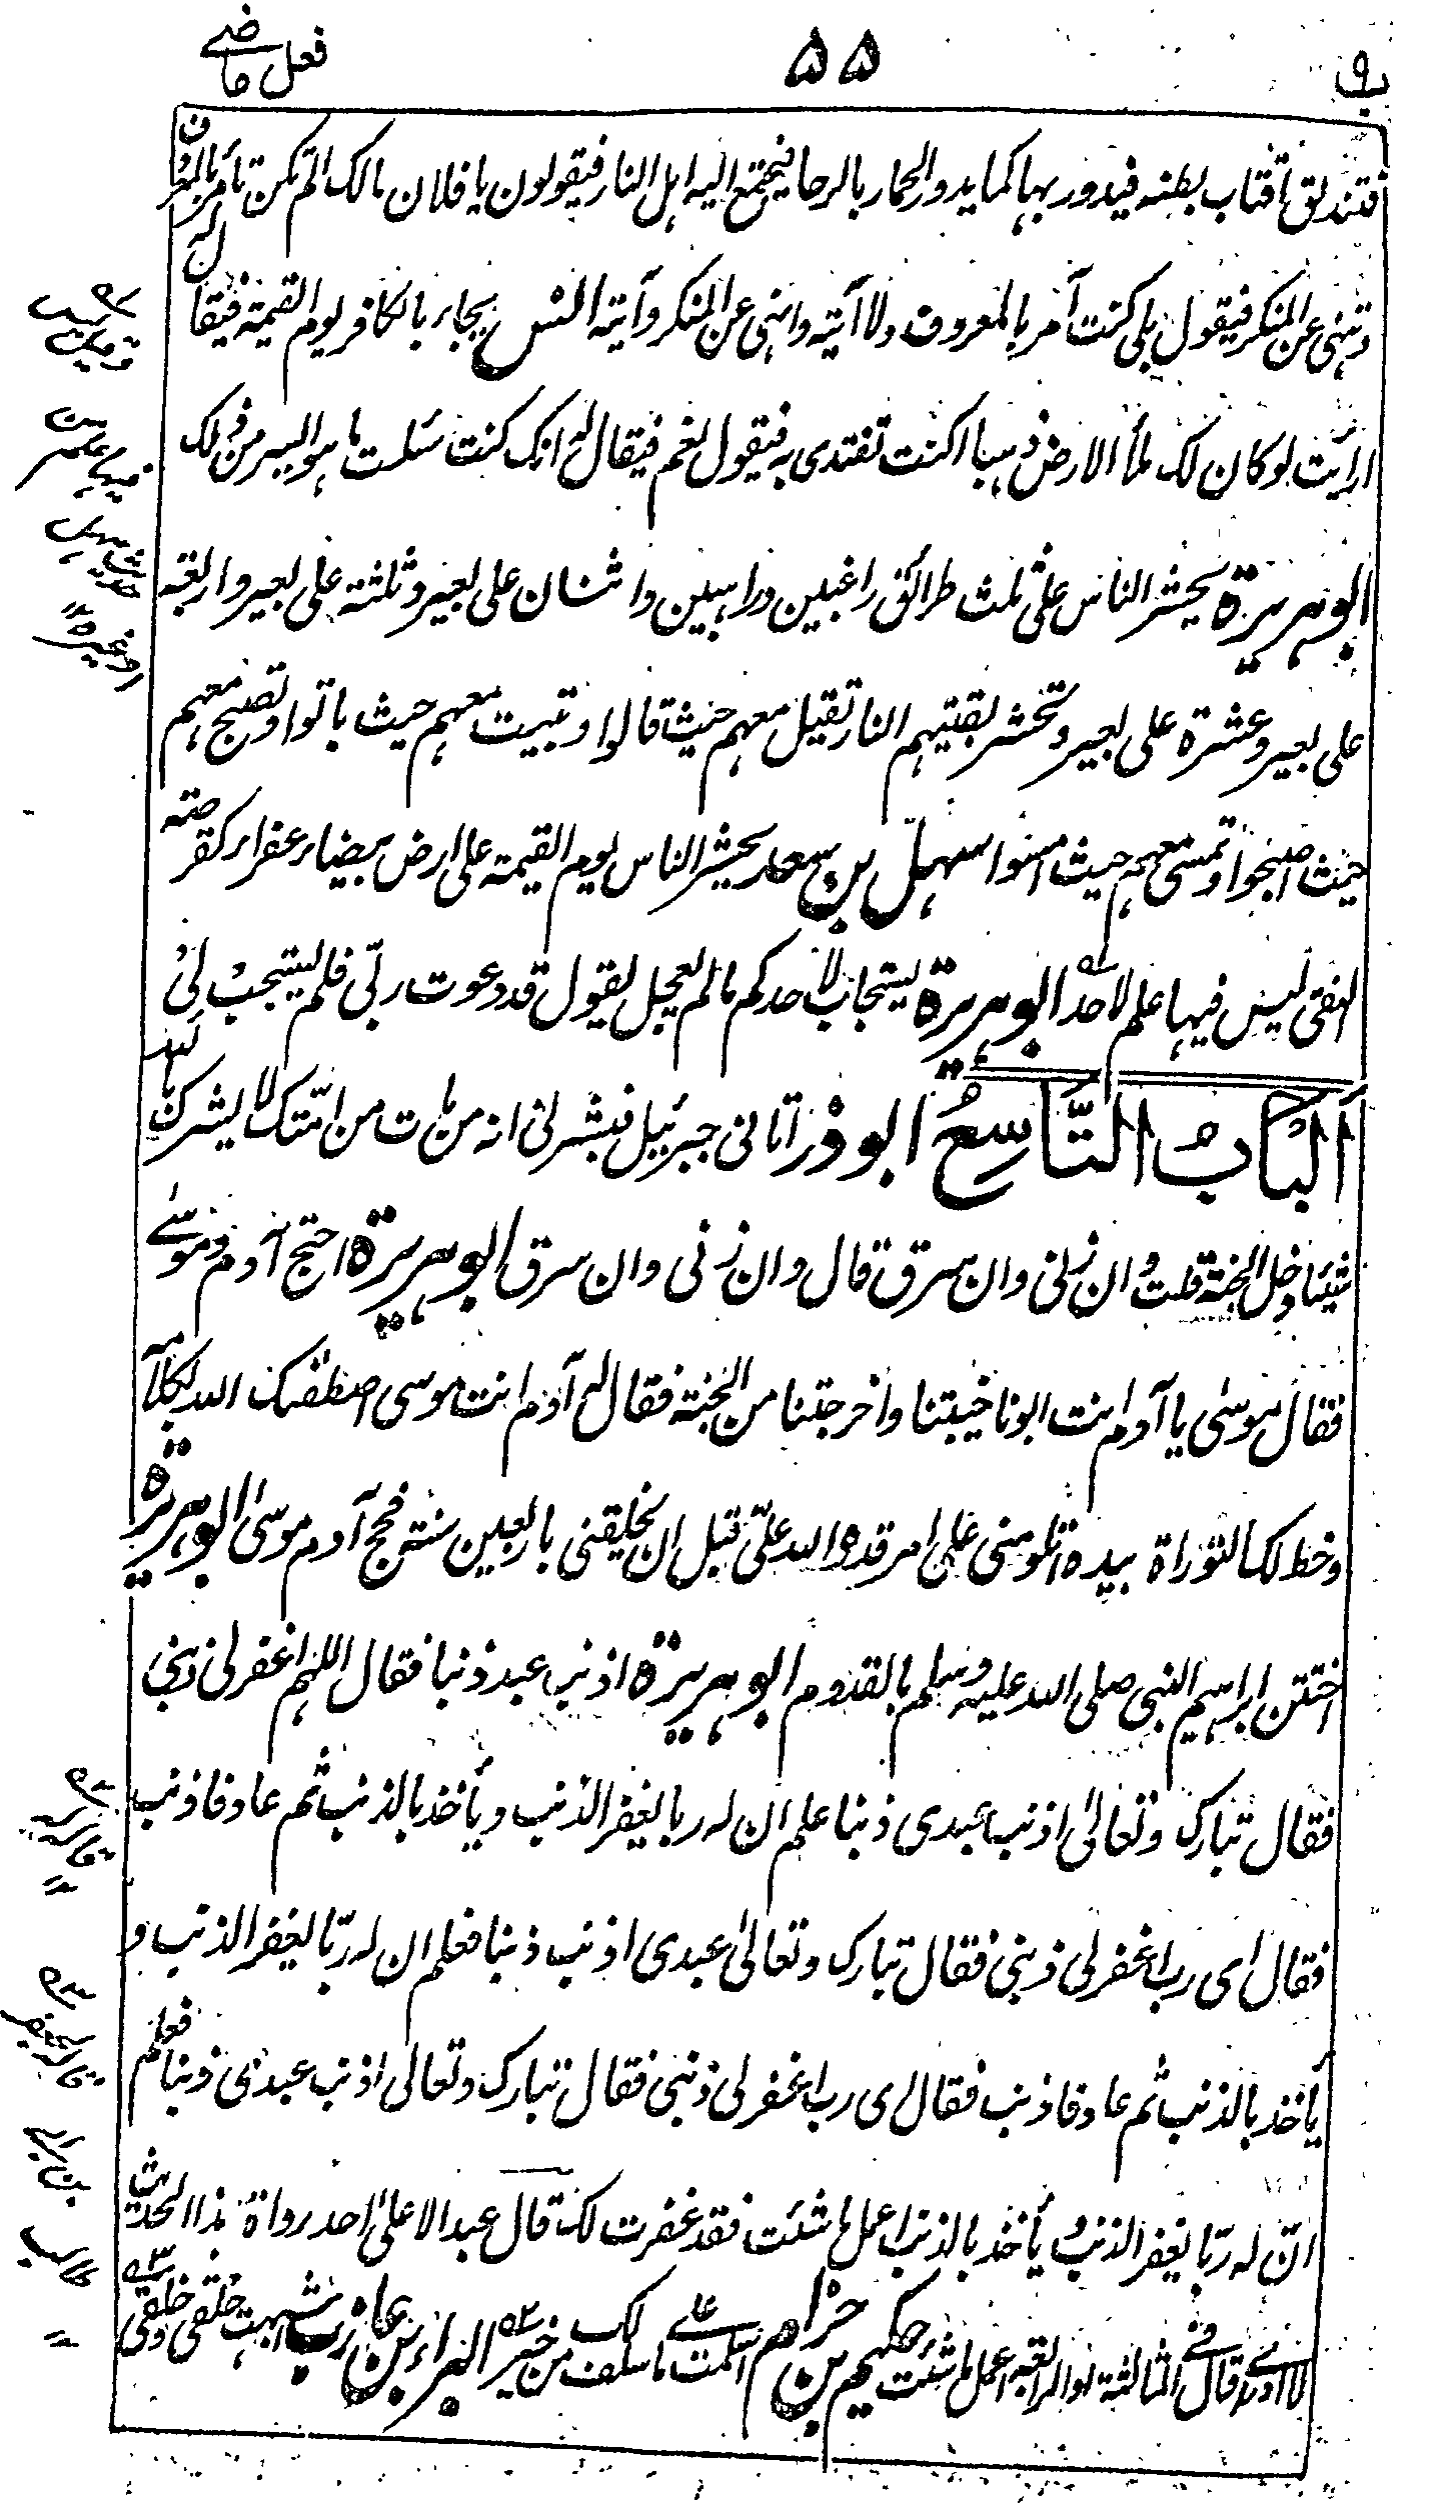 ب ٩
٥٥
فعل ماضے
فتندلق اقتاب بطنه فيدور بها كما يدور الحمار بالرحا فيجتمع اليه اهل النار فيقولون يا فلان مالك الم تكن تأمر بالمعروف
وتنهى عن المنكر فيقول بلى كنت آمر بالمعروف ولا آتيه وانهى عن المنكر وآتيه انس يجاء بالكافر يوم القيمة فيقال له
ارايت لو كان لك ملأ الارض ذهبا اكنت تفتدى به فيقول نعم فيقال له انك كنت سئلت ما هو ايسر من ذلك
ابو هريرة يحشر الناس على ثلث طرائق راغبين وراهبين واثنان على بعير وثلثة على بعير واربعة
على بعير وعشرة على بعير وتحشر بقيتهم النار تقيل معهم حيث قالوا وتبيت معهم حيث باتوا وتصبح معهم
حيث اصبحوا وتمسى معهم حيث امسوا سهل بن سعد يحشر الناس يوم القيمة على ارض بيضاء عفراء كقرصة
النقى ليس فيها علم لاحد ابو هريرة يستجاب لاحدكم ما لم يعجل يقول قد دعوت ربى فلم يستجب لى
الباب التاسع ابو ذر اتانى جبرئيل فبشرنى انه من مات من امتك لا يشرك بالله
شيئا دخل الجنة قلت وان زنى وان سرق قال وان زنى وان سرق ابو هريرة احتج آدم وموسے
فقال موسى يا آدم انت ابونا خيبتنا واخرجتنا من الجنة فقال له آدم انت موسى اصطفك الله بكلامه
وخط لك التوراة بيده اتلومنى على امر قدره الله علىّ قبل ان يخلقنى باربعين سنة فحج آدم موسى ابو هريرة
اختتن ابراهيم النبى صلى الله عليه وسلم بالقدوم ابو هريرة اذنب عبد ذنبا فقال اللهم اغفر لى ذنبى
فقال تبارك وتعالى اذنب عبدى ذنبا علم ان له ربا يغفر الذنب ويأخذ بالذنب ثم عاد فاذنب
فقال اى رب اغفر لى ذنبى فقال تبارك وتعالى عبدى اذنب ذنبا فعلم ان له ربّا يغفر الذنب و
يأخذ بالذنب ثم عاد فاذنب فقال اى رب اغفر لى ذنبى فقال تبارك وتعالى اذنب عبدى ذنبا فعلم
انّ له ربّا يغفر الذنب و يأخذ بالذنب اعمل ما شئت فقد غفرت لك قال عبد الاعلى احد رواة هذا الحديث
لا ادرى قال فے الثالثة او الرابعة اعمل ما شئت حكيم بن حزام اسلمت علے ما سلف لك من خير البراء بن عازب اشبهت خلقى وخلقى